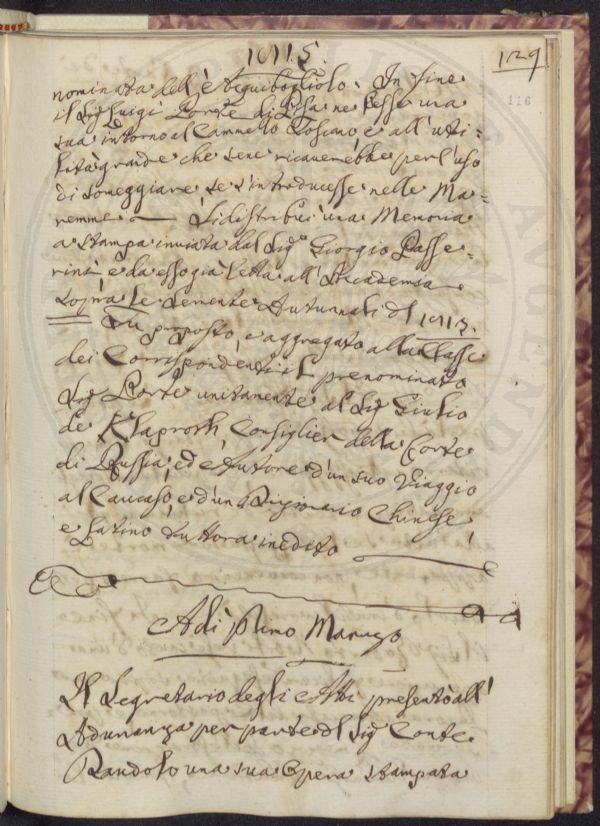 1815.
129
116
nominata dell' Acquibogliolo. In fine
il Sig.r Luigi Porte di Pisa ne lesse una
sua intorno al Cammello Toscano, e all' uti=
lità grande che sene ricaverebbe per l'uso
di Someggiare se s'introducesse nelle Ma=
remme — Si distribuì una Memoria
a stampa inviata dal Sig.r Giorgio Passe=
rini e da esso già letta all' Accademia
sopra le Semente Autunnali del 1813.
Fu proposto, e aggregato alla Classe
dei Corrispondenti il prenominato
Sig.r Porte unitamente al Sig.r Giulio
de Klaproth, Consiglier della Corte
di Russia, ed è Autore d'un suo Viaggio
al Caucaso, e d'un Dizionario Chinese,
e Latino tuttora inedito
Adì Primo Marzo
Il Segretario degli Atti presentò all'
Adunanza per parte del Sig.r Conte
Bandolo una sua Opera stampata